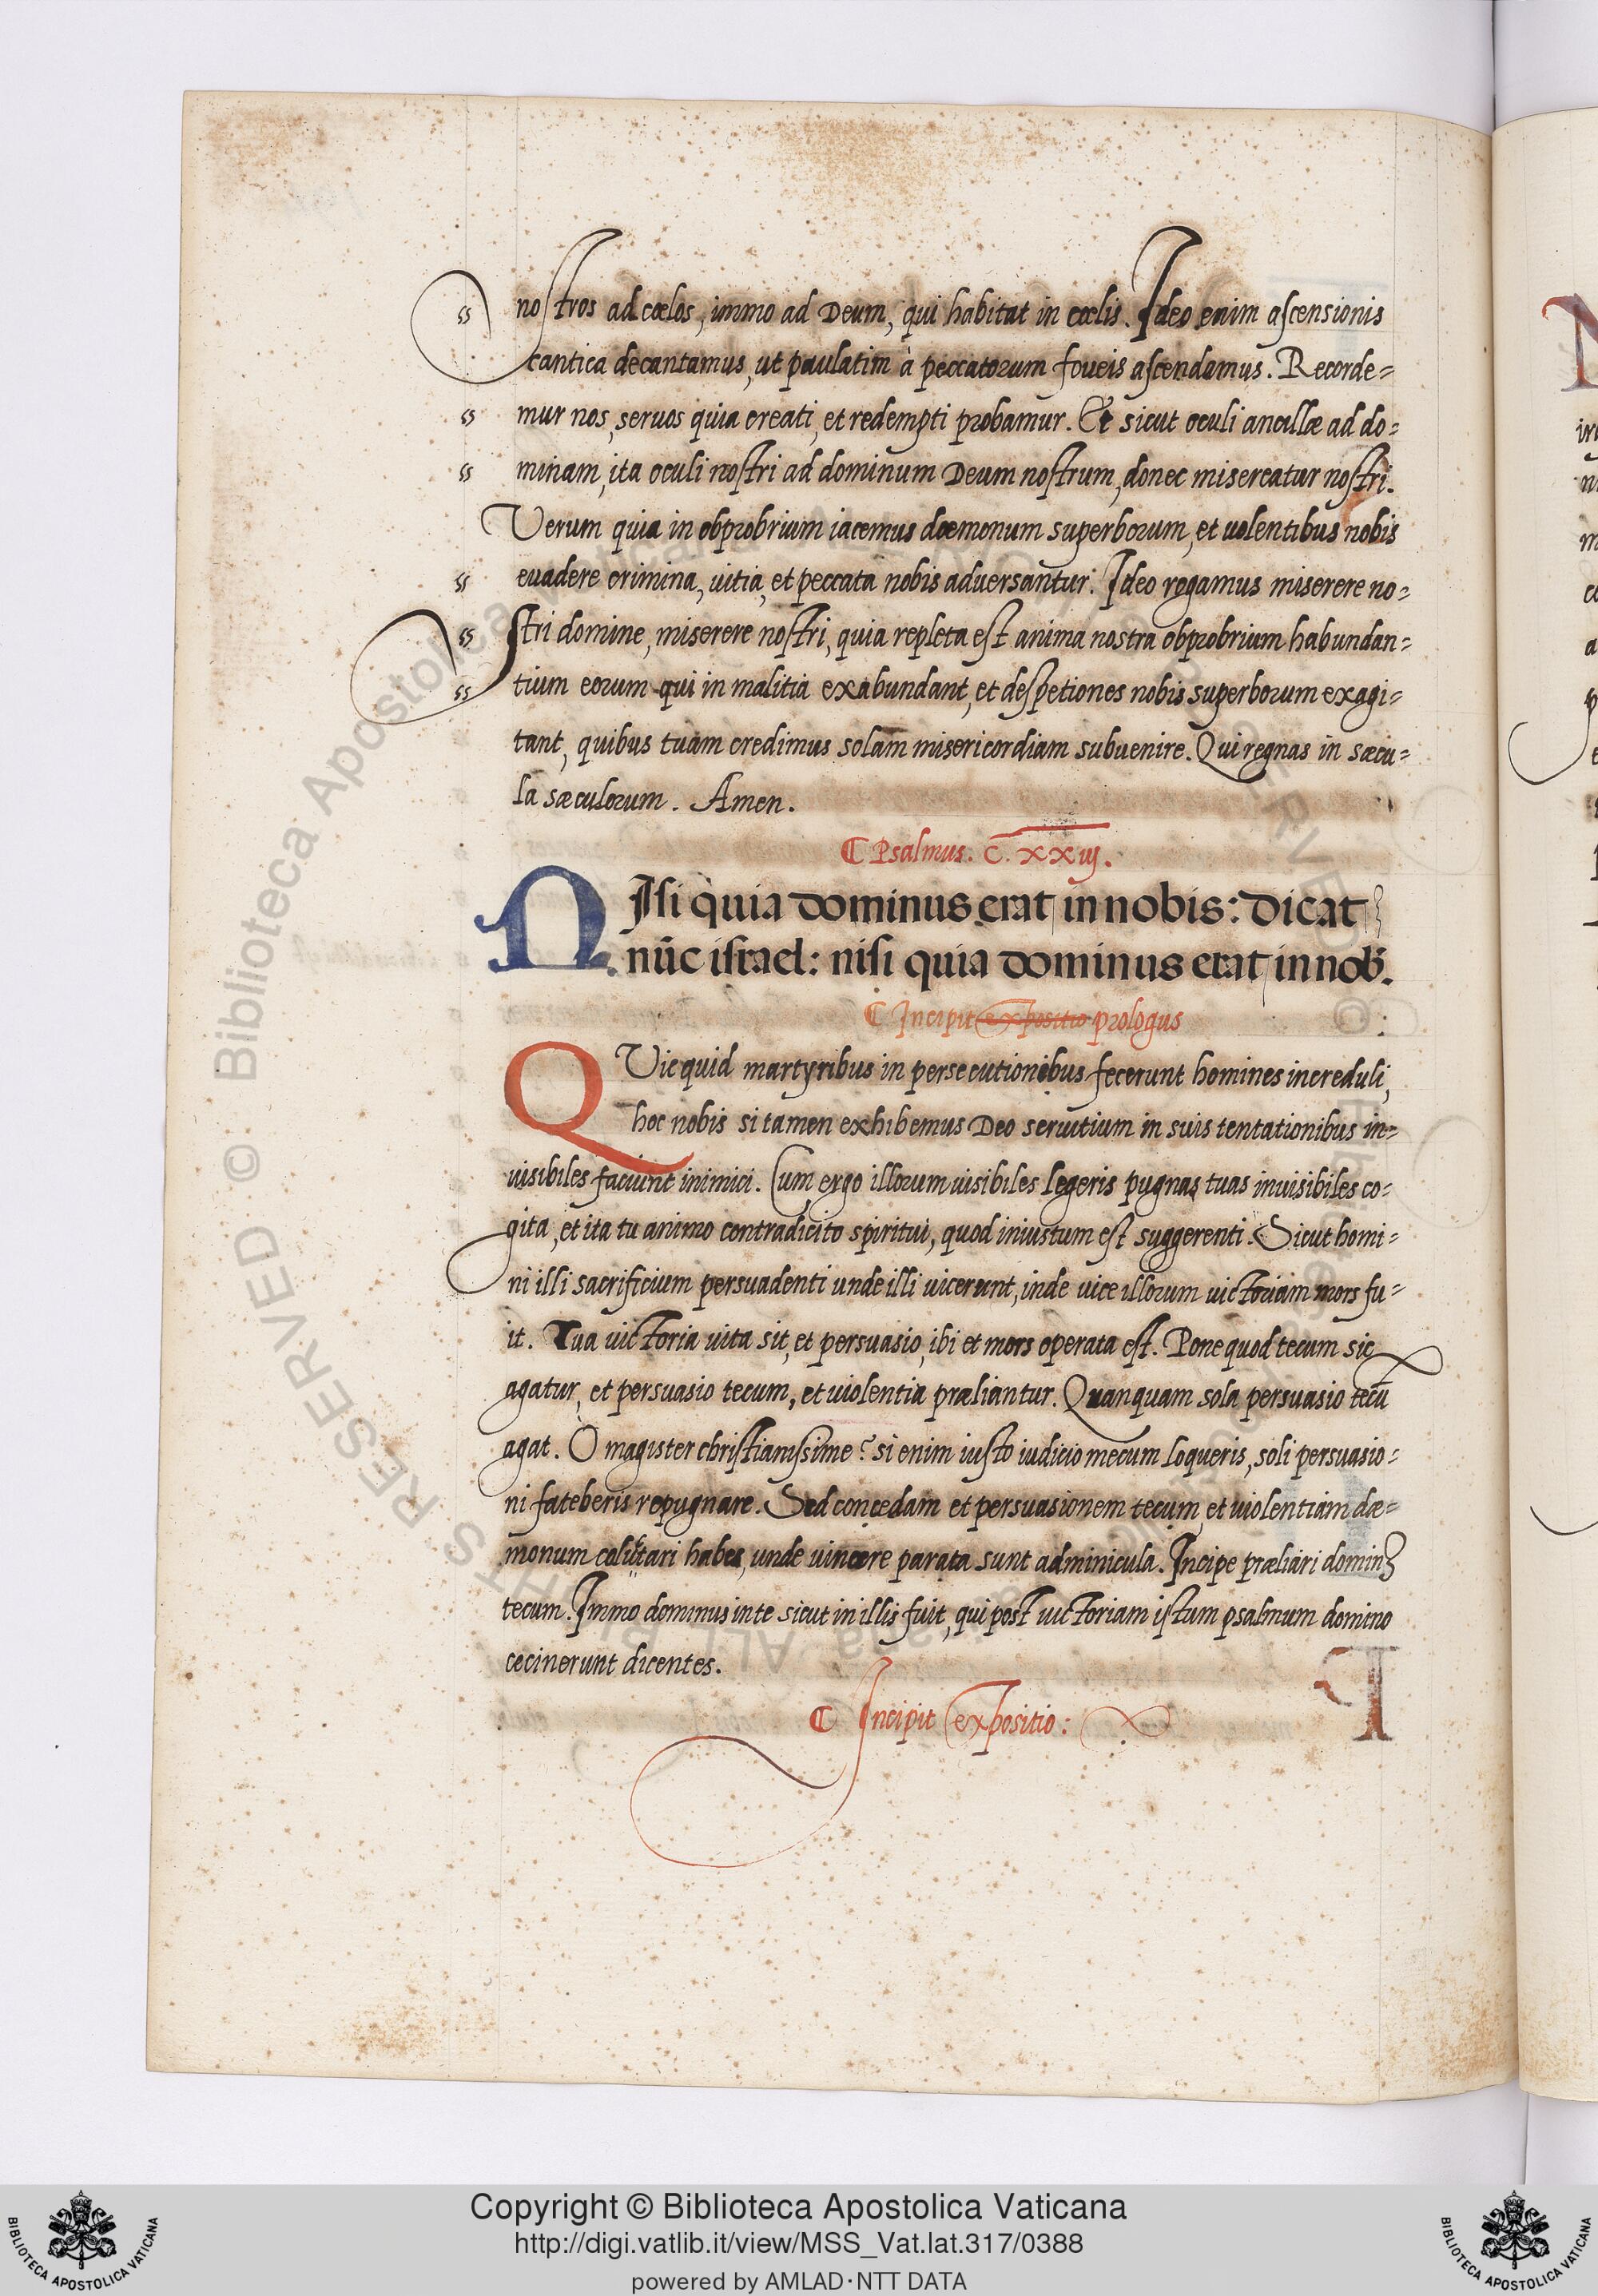 nostros ad cœlos, immo ad Deum, qui habitat in cœlis. Ideo enim ascensionis
cantica decantamus, ut paulatim à peccatorum foueis ascendamus. Recorde=
mur nos, seruos quia creati, et redempti probamur. Et sicut oculi ancillæ ad do=
minam, ita oculi nostri ad dominum Deum nostrum, donec misereatur nostri.
Verum quia in obprobrium iacemus dæmonum superborum, et uolentibus nobis
euadere crimina, uitia, et peccata nobis adversantur: Ideo rogamus miserere no=
stri domine, miserere nostri, quia repleta est anima nostra obprobrium habundan=
tium eorum qui in malitia exabundant, et despetiones nobis superborum exagi=
tant, quibus tuam credimus solam misericordiam subuenire. Qui regnas in sæcu=
la sæculorum. Amen.
Psalmus. C. xxiij.
NIsi quia dominus erat in nobis: dicat
nūc israel: nisi quia dominus erat in nob.
Incipit expositio prologus
QVicquid martyribus in persecutionibus fecerunt homines increduli,
hoc nobis si tamen exhibemus Deo seruitium in suis tentationibus in=
uisibiles faciunt inimici. Cum ergo illorum uisibiles legeris pugnas tuas inuisibiles co=
gita, et ita tu animo contradicito spiritui, quod iniustum est suggerenti. Sicut homi=
ni illi sacrificium persuadenti unde illi uicerunt, inde uice illorum uictoriam mors fu=
it. Tua uictoria uita sit, et persuasio, ibi et mors operata est. Pone quod tecum sic
agatur, et persuasio tecum, et uiolentia præliantur. Quanquam sola persuasio tecū
agat. O magister christianissime? si enim iusto iudicio mecum loqueris, soli persuasio=
ni fateberis repugnare. Sed concedam et persuasionem tecum, et uiolentiam dæ=
monum habes, unde uincere parata sunt adminicula. Incipe præliari
tecum. Immo dominus in te sicut in illis fuit, qui post uictoriam istum psalmum domino
cecinerunt dicentes.
Incipit expositio:
Copyright © Biblioteca Apostolica Vaticana
http://digi.vatlib.it/view/MSS_Vat.lat.317/0388
powered by AMLAD·NTT DATA